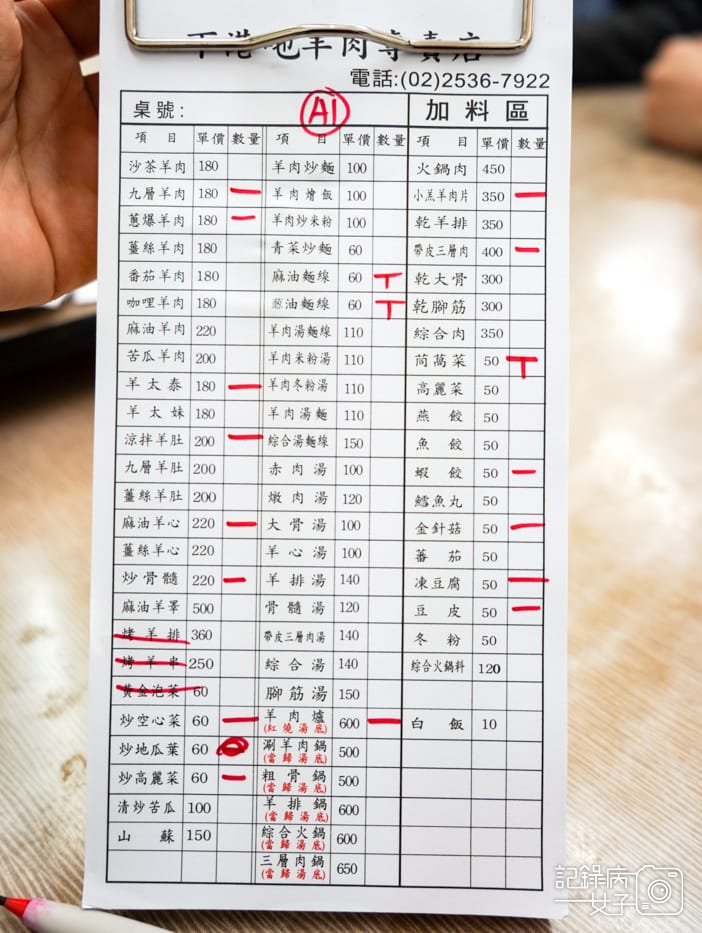 下港吔羊肉專賣店
電話:(02)2536-7922
桌號: A1 加料區
項目 單價 數量 項目 單價 數量 項目 單價 數量
沙茶羊肉 180 羊肉炒麵 100 火鍋肉 450
九層羊肉 180 一 羊肉燴飯 100 小羔羊肉片 350 一
蔥爆羊肉 180 一 羊肉炒米粉 100 乾羊排 350
薑絲羊肉 180 青菜炒麵 60 帶皮三層肉 400 一
番茄羊肉 180 麻油麵線 60 T 乾大骨 300
咖哩羊肉 180 葱油麵線 60 T 乾腳筋 300
麻油羊肉 220 羊肉湯麵線 110 綜合肉 350
苦瓜羊肉 200 羊肉米粉湯 110 茼萵菜 50 T
羊太泰 180 一 羊肉冬粉湯 110 高麗菜 50
羊太妹 180 羊肉湯麵 110 燕餃 50
涼拌羊肚 200 一 綜合湯麵線 150 魚餃 50
九層羊肚 200 赤肉湯 100 蝦餃 50 一
薑絲羊肚 200 燉肉湯 120 鱈魚丸 50
麻油羊心 220 一 大骨湯 100 金針菇 50 一
薑絲羊心 220 羊心湯 100 蕃茄 50
炒骨髓 220 一 羊排湯 140 凍豆腐 50 一
麻油羊睪 500 骨髓湯 120 豆皮 50 一
烤羊排 360 帶皮三層肉湯 140 冬粉 50
烤羊串 250 綜合湯 140 綜合火鍋料 120
黃金泡菜 60 腳筋湯 150
炒空心菜 60 一 羊肉爐 (紅燒湯底) 600 一 白飯 10
炒地瓜葉 60 涮羊肉鍋 (當歸湯底) 500
炒高麗菜 60 一 粗骨鍋 (當歸湯底) 500
清炒苦瓜 100 羊排鍋 (當歸湯底) 600
山蘇 150 綜合火鍋 (當歸湯底) 600
三層肉鍋 (當歸湯底) 650
記錄病一女子